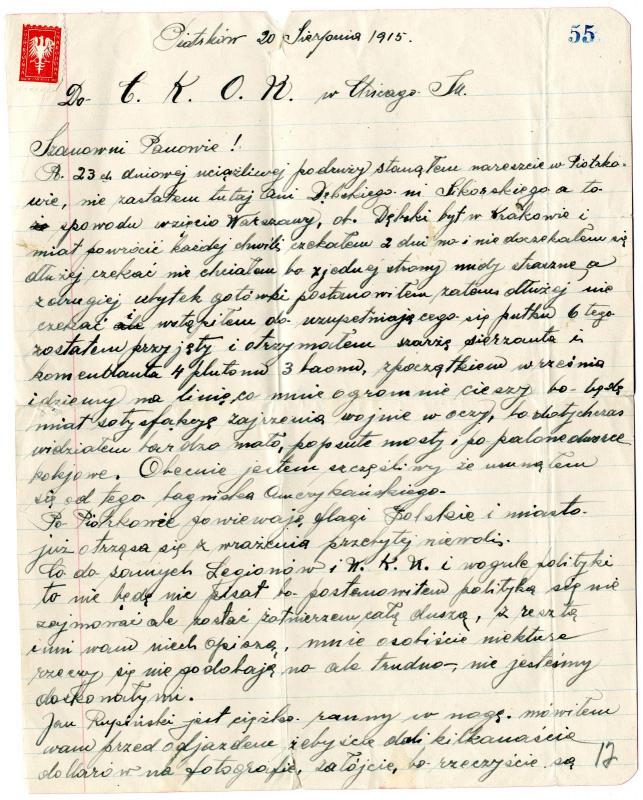 55
Piotrków 20 Sierpnia 1915.
Do C. K. O. N. w Chicago Ill.
Szanowni Panowie!
P. 23 ch dniowej uciążliwej podruży stanąłem nareszcie w Piotrko-
wie, nie zastałem tutaj ani Dębskiego ni Sikorskiego a to
spowodu wzięcia Warszawy, ob. Dębski był w Krakowie i
miał powrócić każdej chwili, czekałem 2 dni no i nie doczekałem się
dłużej czekać nie chciałem bo zjednej strony nudy straszne a
zdrugiej ubytek gotówki postanowiłem zatem dłużej nie
czekać wstąpiłem do uzupełniającego się pułku 6 tego
zostałem przyjęty i otrzymałem szarżę sierżanta i
komendanta 4 plutonu 3 baonu, zpoczątkiem września
idziemy na linię, co mnie ogromnie cieszy bo będę
miał satysfakcyę zajrzenia wojnie w oczy, bo dotychczas
widziałem bardzo mało, popsute mosty i po palone dworce
kolejowe. Obecnie jestem szczęśliwy że usunąłem
się od tego bagniska Amerykańskiego.
Po Piotrkowie powiewają flagi Polskie i miasto
już otrząsa się z wrażenia przebytej niewoli.
Co do samych Legionów i N. K. N. i wogule polityki
to nie będę nic pisał bo postanowiłem polityką się nie
zajmować ale zostać żołnierzem całą duszą, z resztą
inni wam niech opiszą, mnie osobiście niekture
rzeczy się nie podobają no ale trudno, nie jesteśmy
doskonałymi.
Jan Rypiński jest ciężko ranny w nogę. mówiłem
wam przed odjazdem żebyście dali kilkanaście
dollarów na fotografie, załójcie, bo rzeczyście są
12